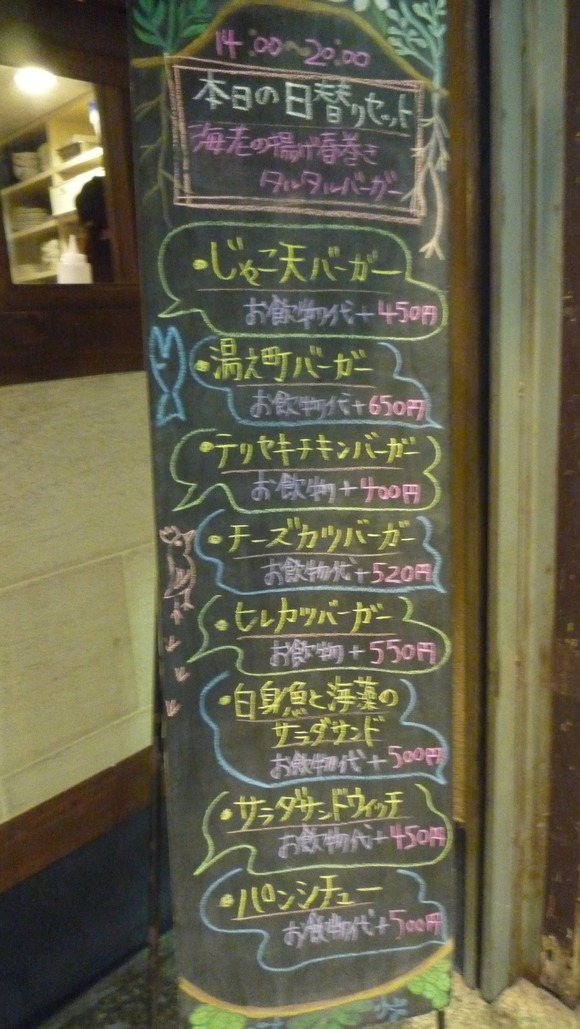 14:00～20:00
本日の日替りセット
海老の揚げ春巻き
タルタルバーガー
・じゃこ天バーガー
お飲物代+450円
・湯え町バーガー
お飲物代+650円
・テリヤキチキンバーガー
お飲物+400円
・チーズカツバーガー
お飲物代+520円
・ヒレカツバーガー
お飲物+550円
・白身魚と海藻の
サラダサンド
お飲物代+500円
・サラダサンドウィッチ
お飲物代+450円
・パンシチュー
お飲物代+500円